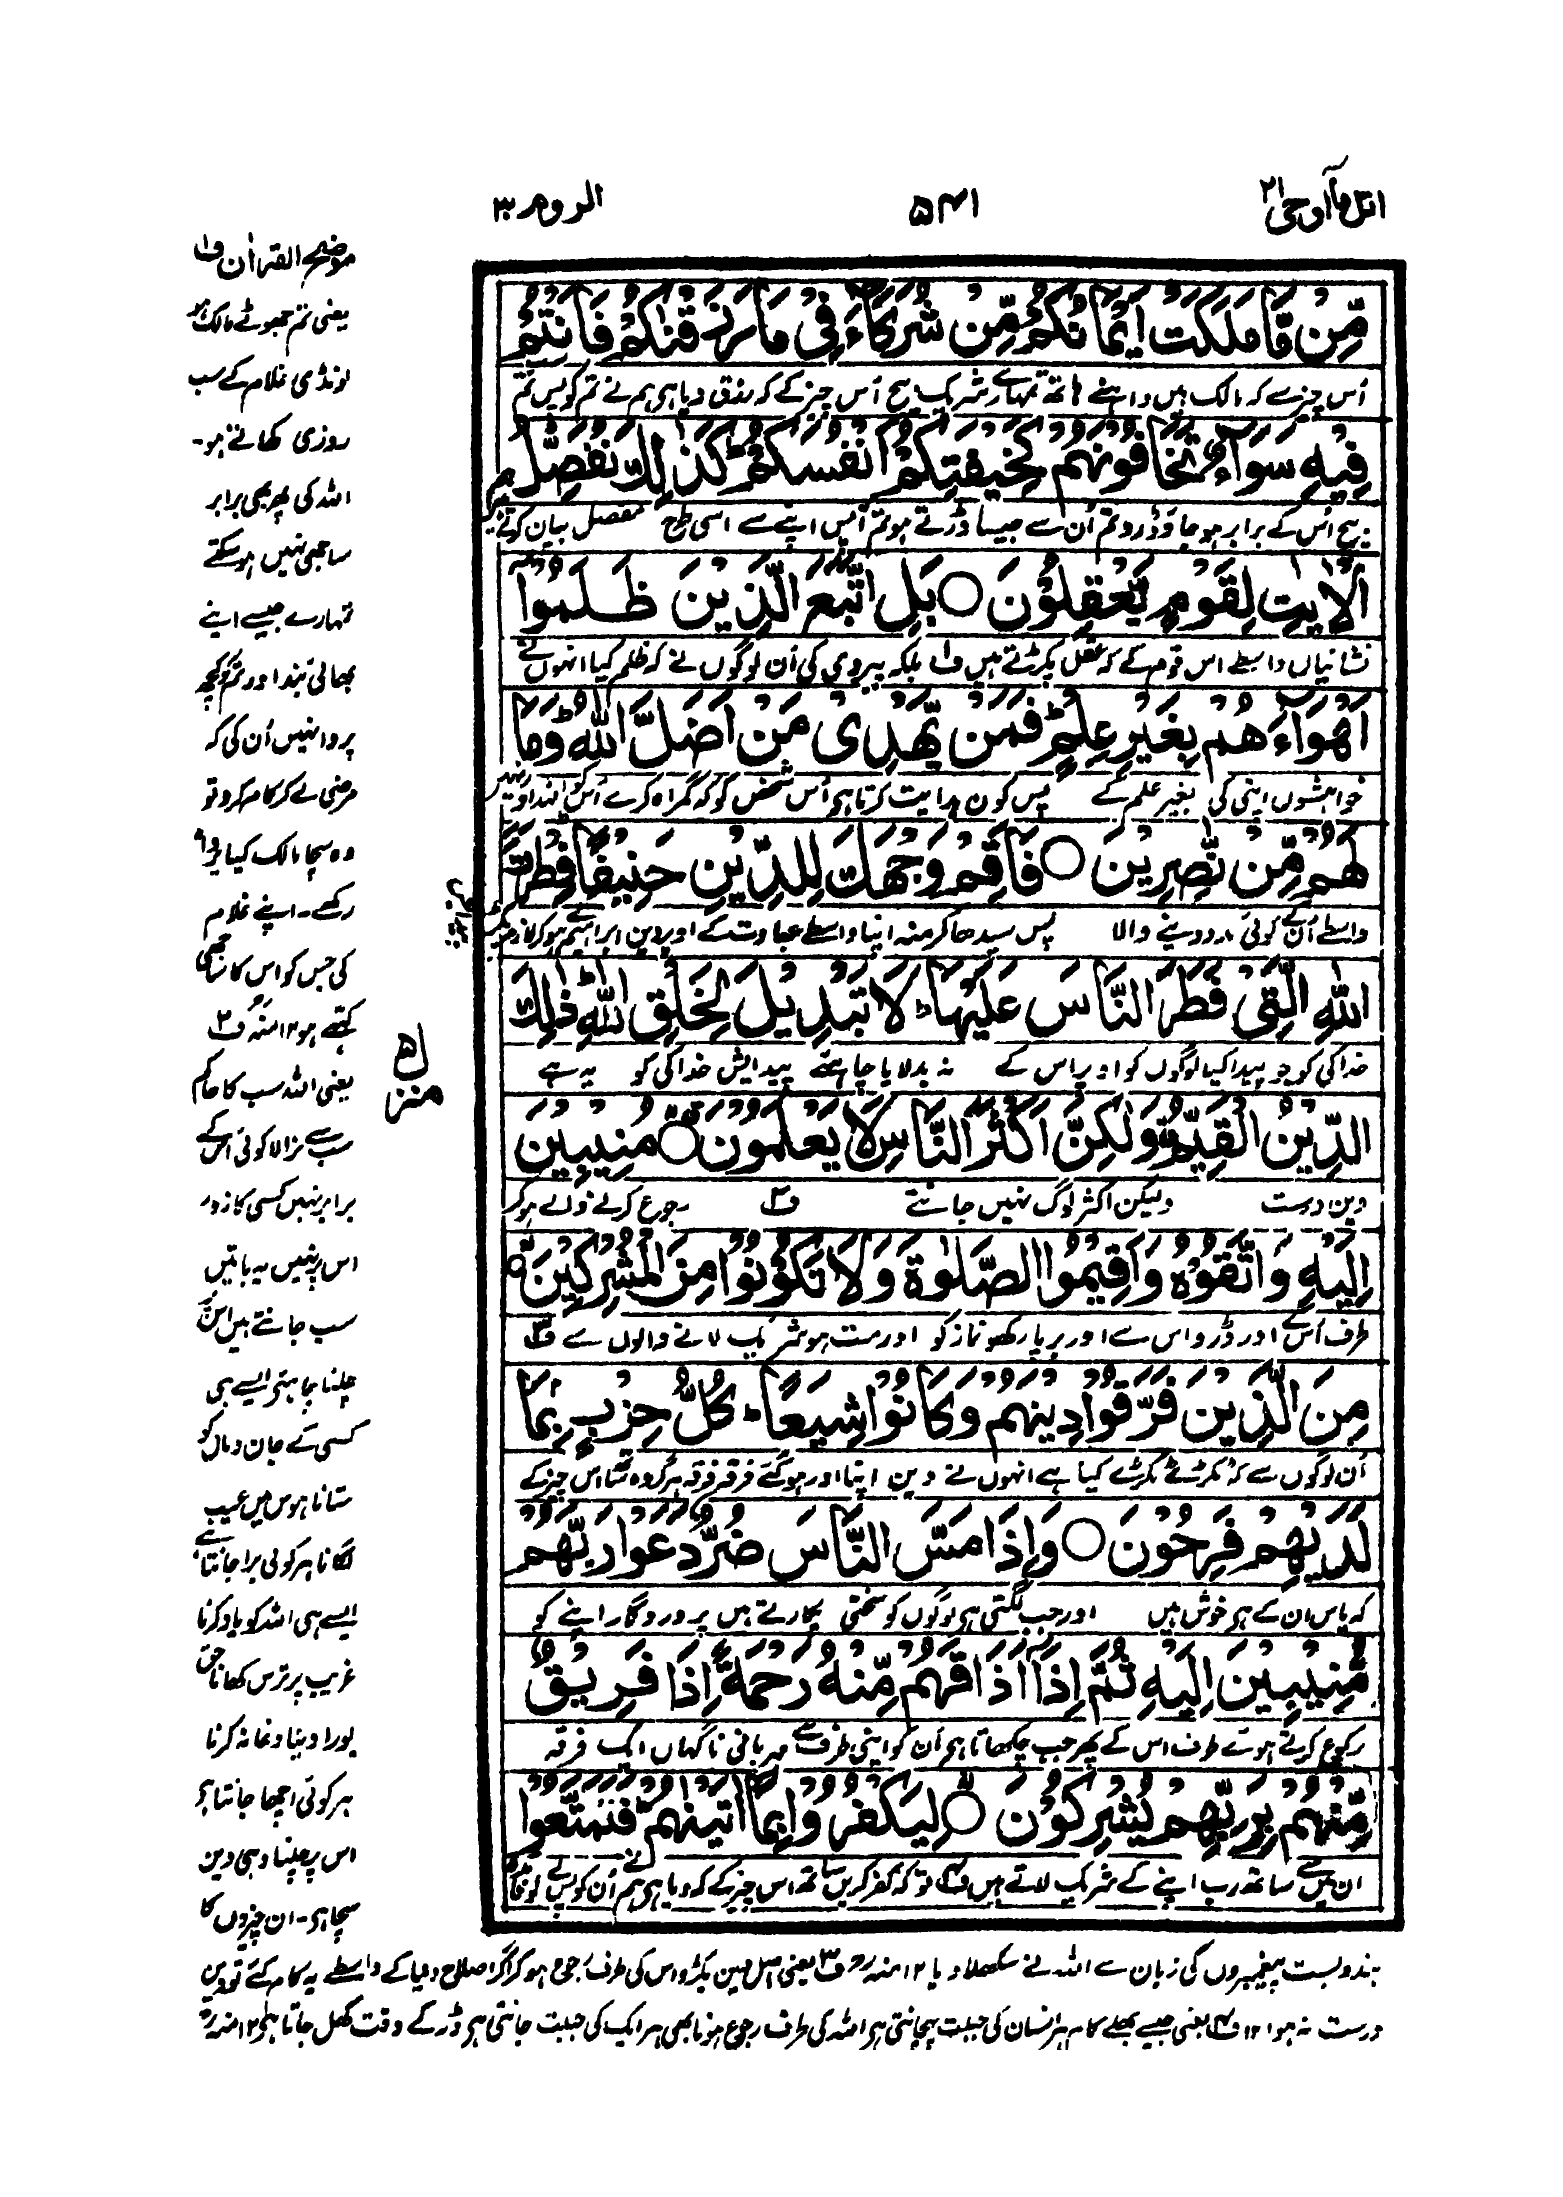 اتل ما اوحی ۲۱
۵۴۱
الروم ۳۰
مِّنۡ مَّا مَلَكَتۡ اَیۡمَانُكُمۡ مِّنۡ شُرَكَآءَ فِیۡ مَا رَزَقۡنٰكُمۡ فَاَنۡتُمۡ
اُس چیز سے کہ مالک ہیں داہنے ہاتھ تمہارے شریک بیچ اُس چیز کے کہ رزق دیا ہی ہم نے تم کو پس تم
فِیۡهِ سَوَآءٌ تَخَافُوۡنَهُمۡ كَخِیۡفَتِكُمۡ اَنۡفُسَكُمۡ ؕ كَذٰلِكَ نُفَصِّلُ
بیچ اُس کے برابر ہو جاؤ ڈرو تم اُن سے جیسا ڈرتے ہو تم آپس اپنے سے اسی طرح مفصل بیان کرتے ہیں
الۡاٰیٰتِ لِقَوۡمٍ یَّعۡقِلُوۡنَ ○ بَلِ اتَّبَعَ الَّذِیۡنَ ظَلَمُوۡۤا
نشانیاں واسطے اس قوم کے کہ عقل پکڑتے ہیں ف۱ بلکہ پیروی کی اُن لوگوں نے کہ ظلم کیا انہوں نے
اَهۡوَآءَهُمۡ بِغَیۡرِ عِلۡمٍ ۚ فَمَنۡ یَّهۡدِیۡ مَنۡ اَضَلَّ اللّٰهُ ؕ وَمَا
خواہشوں اپنی کی بغیر علم کے پس کون ہدایت کرتا ہی اُس شخص کو کہ گمراہ کرے اُس کو اللہ اور نہیں
لَهُمۡ مِّنۡ نّٰصِرِیۡنَ ○ فَاَقِمۡ وَجۡهَكَ لِلدِّیۡنِ حَنِیۡفًا ؕ فِطۡرَتَ
واسطے اُن کے کوئی مدد دینے والا پس سیدھا کر منہ اپنا واسطے عبادت کے اوپر دین ابراہیم ہو کر لازم
اللّٰهِ الَّتِیۡ فَطَرَ النَّاسَ عَلَیۡهَا ؕ لَا تَبۡدِیۡلَ لِخَلۡقِ اللّٰهِ ؕ ذٰلِكَ
خدا کی کو جو پیدا کیا لوگوں کو اوپر اس کے نہ بدلا یا چاہئے پیدایش خدا کی کو یہ ہے
الدِّیۡنُ الۡقَیِّمُ ۙ وَلٰكِنَّ اَكۡثَرَ النَّاسِ لَا یَعۡلَمُوۡنَ ○ مُنِیۡبِیۡنَ
دین درست ولیکن اکثر لوگ نہیں جانتے ف۲ رجوع کرنے والے ہو کر
اِلَیۡهِ وَاتَّقُوۡهُ وَاَقِیۡمُوا الصَّلٰوةَ وَلَا تَكُوۡنُوۡا مِنَ الۡمُشۡرِكِیۡنَ ○
طرف اُس کے اور ڈرو اس سے اور برپا رکھو نماز کو اور مت ہو شریک لانے والوں سے ف۳
مِنَ الَّذِیۡنَ فَرَّقُوۡا دِیۡنَهُمۡ وَكَانُوۡا شِیَعًا ؕ كُلُّ حِزۡبٍۭ بِمَا
اُن لوگوں سے کہ ٹکڑے ٹکڑے کیا ہے انہوں نے دین اپنا اور ہو گئے فرقہ فرقہ ہر گروہ ساتھ اس چیز کے
لَدَیۡهِمۡ فَرِحُوۡنَ ○ وَاِذَا مَسَّ النَّاسَ ضُرٌّ دَعَوۡا رَبَّهُمۡ
کہ پاس ان کے ہی خوش ہیں اور جب لگتی ہی لوگوں کو سختی پکارتے ہیں پروردگار اپنے کو
مُّنِیۡبِیۡنَ اِلَیۡهِ ثُمَّ اِذَاۤ اَذَاقَهُمۡ مِّنۡهُ رَحۡمَةً اِذَا فَرِیۡقٌ
رجوع کرتے ہوئے طرف اس کے پھر جب چکھاتا ہی اُن کو اپنی طرف سے مہربانی ناگہاں ایک فرقہ
مِّنۡهُمۡ بِرَبِّهِمۡ یُشۡرِكُوۡنَ ○ لِیَكۡفُرُوۡا بِمَاۤ اٰتَیۡنٰهُمۡ ؕ فَتَمَتَّعُوۡا
ان میں سے ساتھ رب اپنے کے شریک لاتے ہیں ف۴ تو کہ کفر کریں ساتھ اس چیز کے کہ دیا ہی ہم نے اُن کو پس
موضح القرآن ف۱
یعنی تم جھوٹے مالک ہو
لونڈی غلام کے سب
روزی کھاتے ہو۔
اللہ کی پھر بھی برابر
ساجھی نہیں ہو سکتے
تمہارے جیسے اپنے
بھائی بند اور تم کو کچھ
پروا نہیں اُن کی کہ
مرضی لے کر کام کرو تو
وہ سچا مالک کیا پروا
رکھے۔ اپنے غلام
کی جس کو اس کا ساجھی
کہتے ہو ۱۲ منہ ف۲
یعنی اللہ سب کا حاکم
سب سے نرالا کوئی اس کے
برابر نہیں کسی کا زور
اس پر نہیں یہ باتیں
سب جانتے ہیں اس پر
چلنا چاہئے ایسے ہی
کسی کے جان و مال کو
ستانا ناموس میں عیب
لگانا ہر کوئی برا جانتا ہے
ایسے ہی اللہ کو یاد کرنا
غریب پر ترس کھانا حق
پورا دینا دغا نہ کرنا
ہر کوئی اچھا جانتا ہی
اس پر چلنا وہی دین
سچا ہی۔ ان چیزوں کا
منزل ۵
بندوبست پیغمبروں کی زبان سے اللہ نے سکھلا دیا ۱۲ منہ رح ف۳ یعنی اصل دین پکڑو اس کی طرف رجوع ہو کر اگر اصلاح دنیا کے واسطے یہ کام کئے تو دین
درست نہ ہوا ۱۲ ف۴ یعنی جیسے بھلے کام ہر انسان کی جبلت پہچانتی ہی اللہ کی طرف رجوع ہونا بھی ہر ایک کی جبلت جانتی ہی ڈر کے وقت کھل جاتا ہی ۱۲ منہ رح